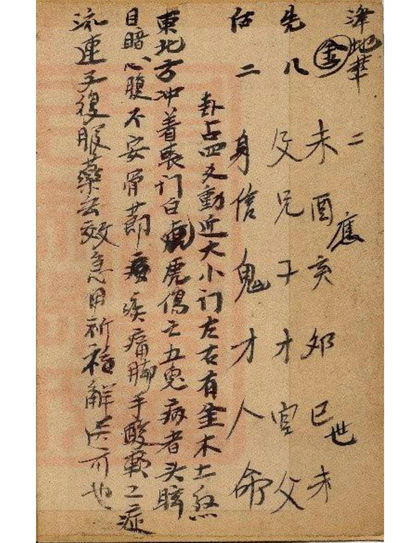 澤地萃 二
金 未酉亥卯巳未
應 世
先 父兄子才官父
二 身信鬼才人命
卦占四爻動近大小门左右有金木土煞
東北方冲着喪门白虎傷亡五鬼病者头眩
目暗心腹不安骨節疾痛脚手酸軟之症
流連不復服藥效急用祈福解送可也